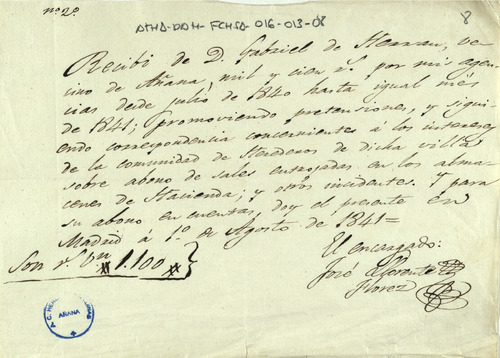 nº 2º
ATHA-DAH-FCHSA-016-013-08
8
Recibí de D. Gabriel de Herran, ve-
cino de Añana, mil y cien rˢ por mis agen-
cias desde julio de 1840 hasta igual mes
de 1841; promoviendo pretensiones, y sigui-
endo correspondencia concernientes á los intereses
de la comunidad de Herederos de dicha villa,
sobre abono de sales entrojadas en los alma-
cenes de Hacienda; y otros incidentes. Y para
su abono en cuentas, doy el presente en
Madrid á 1º de Agosto de 1841=
El encargado:
Son rˢ vⁿ 1.100
José Llorente
Florez
AÑANA